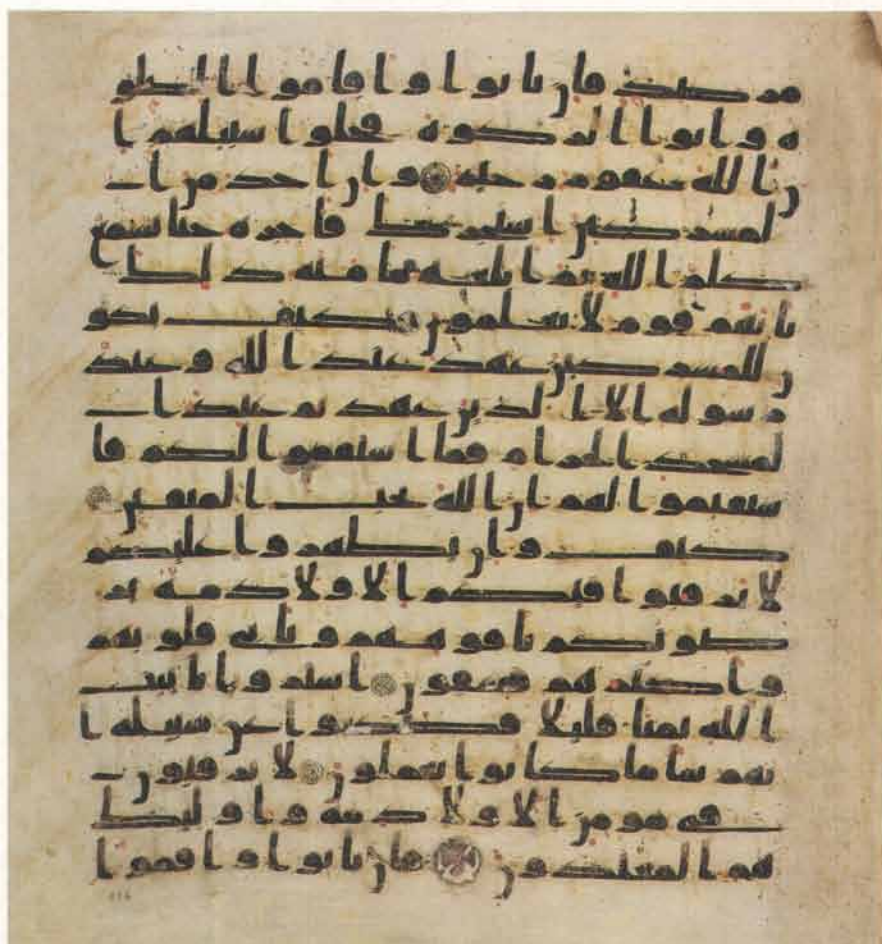 مرصد فان تابوا واقاموا الصلو
ه واتوا الزكوه فخلوا سبيلهم ا
ن الله غفور رحيم وان احد من ا
لمشركين استجارك فاجره حتا يسمع
كلم الله ثم ابلغه مامنه ذلك
بانهم قوم لا يعلمون كيف يكو
ن للمشركين عهد عند الله وعند
رسوله الا الذين عهدتم عند ا
لمسجد الحرام فما استقموا لكم فا
ستقيموا لهم ان الله يحب المتقين
كيف وان يظهروا عليكم
لا يرقبوا فيكم الا ولا ذمه ير
ضونكم بافوههم وتابى قلوبهم
واكثرهم فسقون اشتروا بايت
الله ثمنا قليلا فصدوا عن سبيله ا
نهم سا ما كانوا يعملون لا يرقبون
في مومن الا ولا ذمه واوليك
هم المعتدون فان تابوا واقموا ا